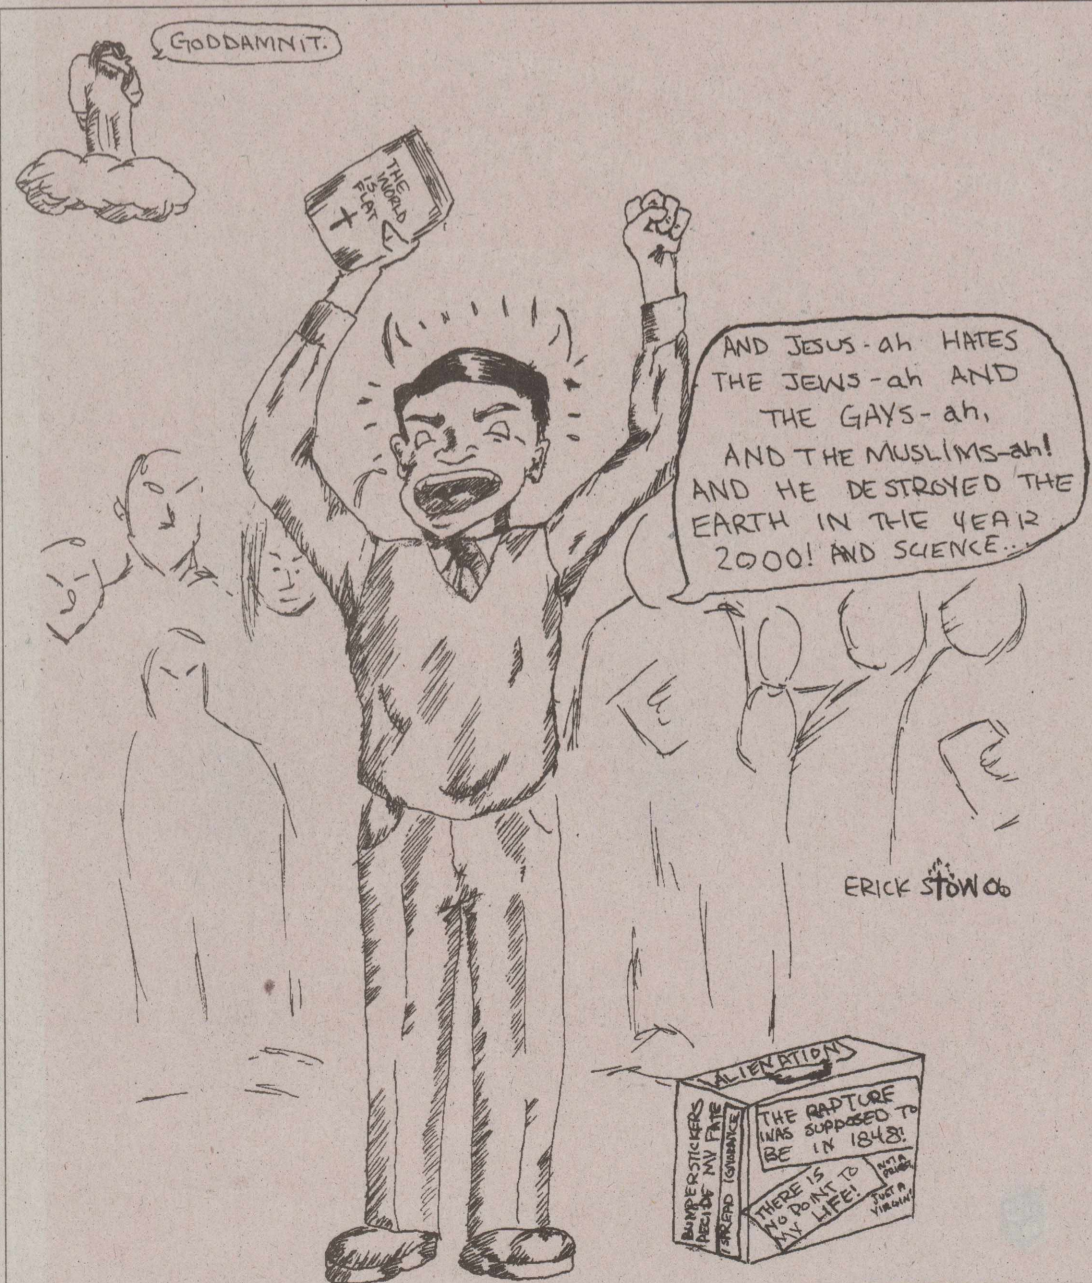 GODDAMNIT.
THE
WORLD
IS
FLAT
AND JESUS-ah HATES
THE JEWS-ah AND
THE GAYS-ah,
AND THE MUSLIMS-ah!
AND HE DESTROYED THE
EARTH IN THE YEAR
2000! AND SCIENCE...
ERICK STOW 06
ALIENATION
BUMPERSTICKERS
DECIDE MY FATE
I SPREAD IGNORANCE
THE RAPTURE
WAS SUPPOSED TO
BE IN 1848!
THERE IS
NO POINT TO
MY LIFE!
NOT A
JUST A
VIRGIN!